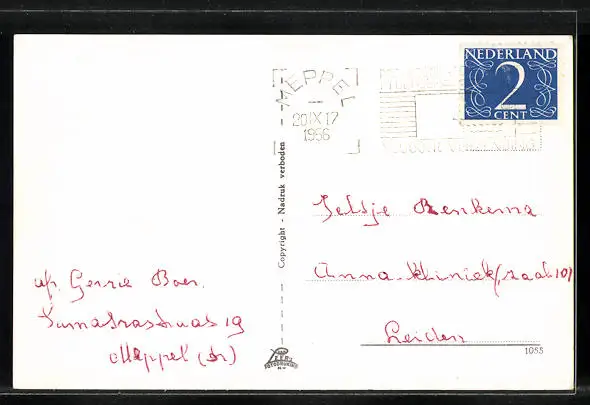 NEDERLAND
2
CENT
MEPPEL
20 IX 17
1956
Copyright - Nadruk verboden
Jeltje Renkema
Anna-kliniek (zaal 10)
Leiden
afz. Gerrie Boer.
Sumatrastraat 19
Meppel (Dr)
FOTODRUKKERIJ
1055